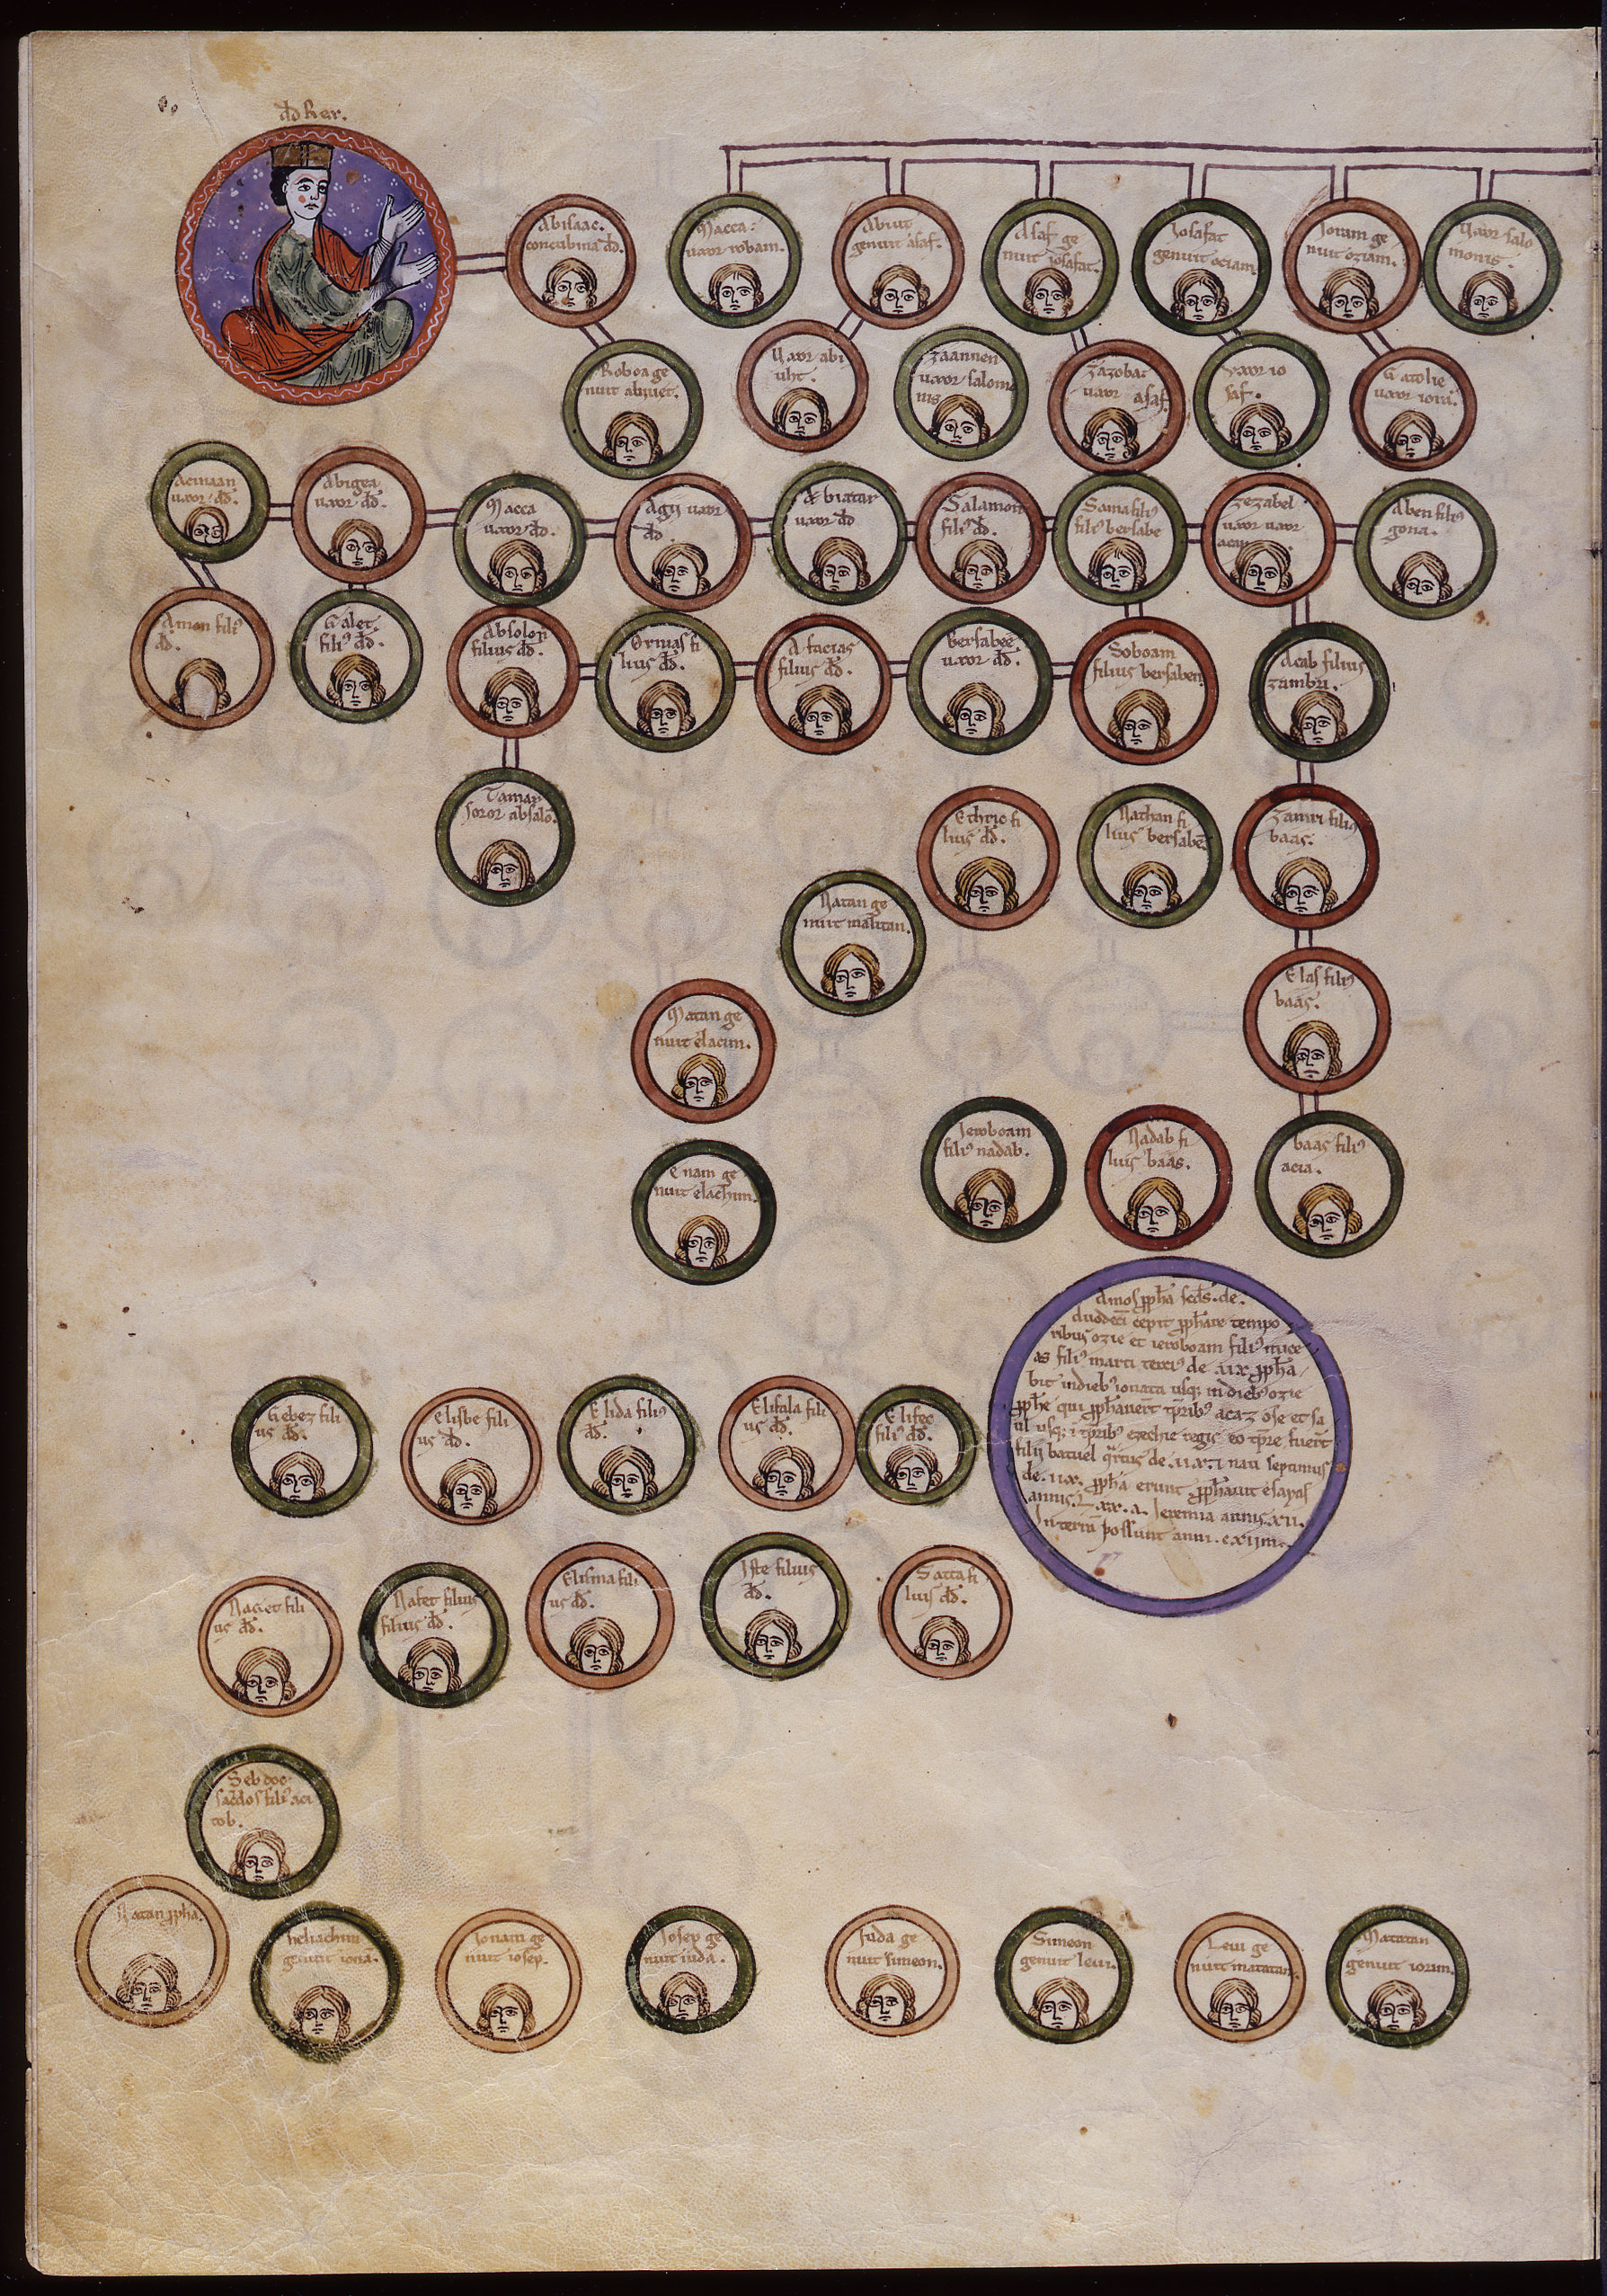 dd Rex.
Abisaac.
concubina dd.
Macca:
uxor robam.
Abiut
genuit asaf.
Asaf ge
nuit iosafat.
Iosafat
genuit ociam
Joram ge
nuit oziam.
Uxor salo
monis.
Roboa ge
nuit abiuet.
Uxor abi
uht.
zaannen
uxor salomo
nis
zazobat
uxor asaf.
uxor io
saf.
Gatolie
uxor iora.
Acinaan
uxor dd.
Abigea
uxor dd.
Macca
uxor dd.
Agij uxor
dd.
Abiatar
uxor dd
Salamon
fili⁹ dd.
Sama fili⁹
fili⁹ bersabe
zezabel
uxor uxor
Aben fili⁹
gona.
Amon fili⁹
dd.
Galet.
fili⁹ dd.
Absolon
filius dd.
Ornias fi
lius dd.
Afacias
filius dd.
Bersabee
uxor dd.
Soboam
filius bersaben.
Acab filius
zambri.
Tamar
soror absalo.
Ethrio fi
lius dd.
Nathan fi
lius bersabe.
zamri filius
baas.
Natan ge
nuit matitan.
Matan ge
nuit eliacim.
Elas fili⁹
baas.
Jeroboam
fili⁹ nadab.
Nadab fi
lius baas.
baas fili⁹
acia.
Enam ge
nuit elachim.
Amos ppha scds. de.
duodeci cepit pphare tempo
ribus ozie et ieroboam fili⁹ nuce
as fili⁹ marti terci⁹ de .xix. ppha
bit indieb⁹ ionata usq; indieb⁹ ozie
pphe qui pphauert tprib⁹ acaz ose et sa
ul usq; i tprib⁹ ezechie regis eo tpre fuert
filij batuel qrtus de .xix. i nau septimus
de .xix. ppha erunt pphauit esayas
annis .Lxx.a. Jeremia annis .xii.
Interim possunt anni .cxiiii.
Gebez fili
us dd.
Elisbe fili
us dd.
Elida fili⁹
dd.
Elifala fili
us dd.
Elifec
fili⁹ dd.
Naget fili
us dd.
Nafet filius
filius dd.
Elisma fili
us dd.
Iste filius
dd.
Satta fi
lius dd.
Sebdoc
sacdos fili⁹ aci
tob.
Natan ppha.
heliachim
genuit iona.
Jonam ge
nuit iosep.
Josep ge
nuit iuda.
Juda ge
nuit simeon.
Simeon
genuit leui.
Leui ge
nuit matatan.
Matatan
genuit iorim.